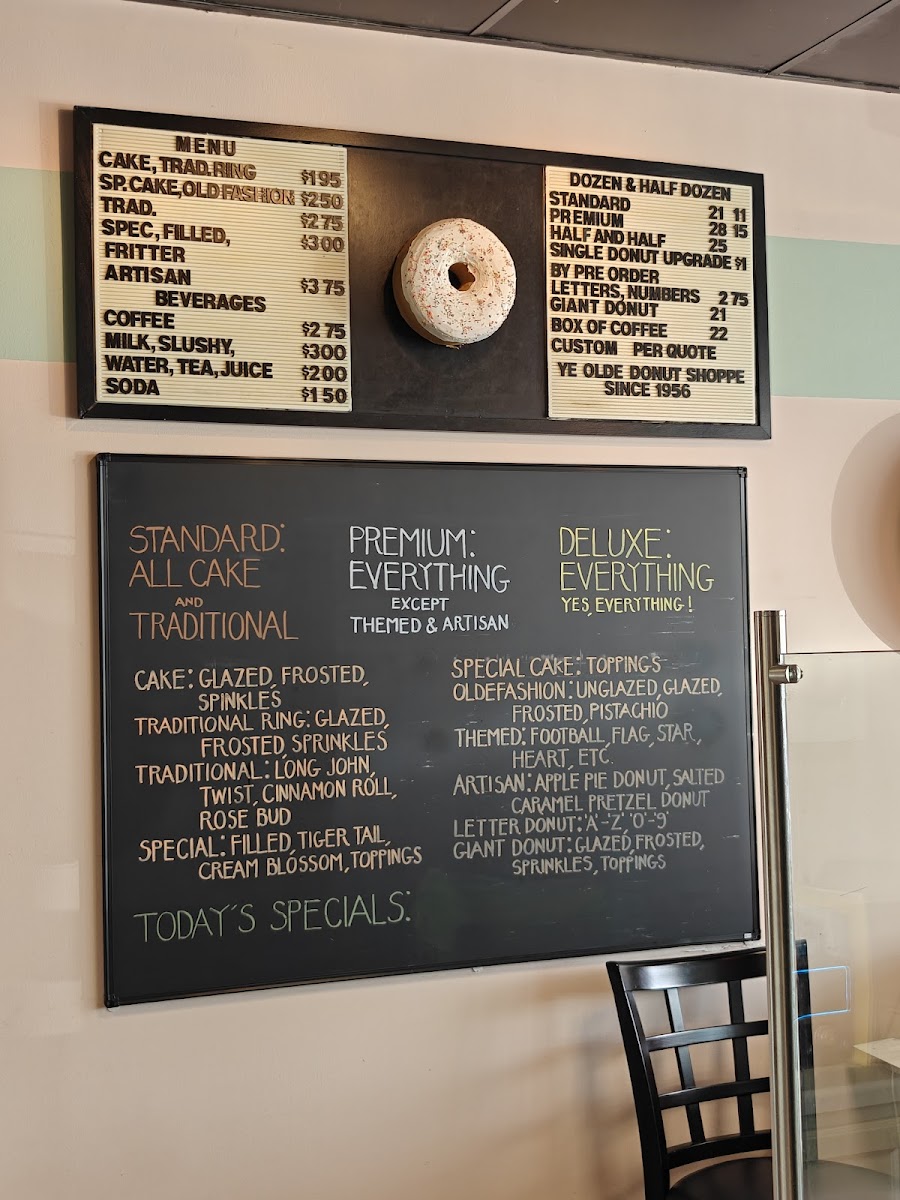 MENU
CAKE, TRAD. RING $195
SP. CAKE, OLD FASHION $250
TRAD. $275
SPEC, FILLED, $300
FRITTER
ARTISAN $375
BEVERAGES
COFFEE $275
MILK, SLUSHY, $300
WATER, TEA, JUICE $200
SODA $150
DOZEN & HALF DOZEN
STANDARD 21 11
PREMIUM 28 15
HALF AND HALF 25
SINGLE DONUT UPGRADE $1
BY PRE ORDER
LETTERS, NUMBERS 275
GIANT DONUT 21
BOX OF COFFEE 22
CUSTOM PER QUOTE
YE OLDE DONUT SHOPPE
SINCE 1956
STANDARD:
ALL CAKE
AND
TRADITIONAL
PREMIUM:
EVERYTHING
EXCEPT
THEMED & ARTISAN
DELUXE:
EVERYTHING
YES, EVERYTHING!
CAKE: GLAZED, FROSTED,
SPINKLES
TRADITIONAL RING: GLAZED,
FROSTED, SPRINKLES
TRADITIONAL: LONG JOHN,
TWIST, CINNAMON ROLL,
ROSE BUD
SPECIAL: FILLED, TIGER TAIL,
CREAM BLOSSOM, TOPPINGS
SPECIAL CAKE: TOPPINGS
OLDEFASHION: UNGLAZED, GLAZED,
FROSTED, PISTACHIO
THEMED: FOOTBALL, FLAG, STAR,
HEART, ETC.
ARTISAN: APPLE PIE DONUT, SALTED
CARAMEL PRETZEL DONUT
LETTER DONUT: 'A'-'Z', '0'-'9'
GIANT DONUT: GLAZED, FROSTED,
SPRINKLES, TOPPINGS
TODAY'S SPECIALS: